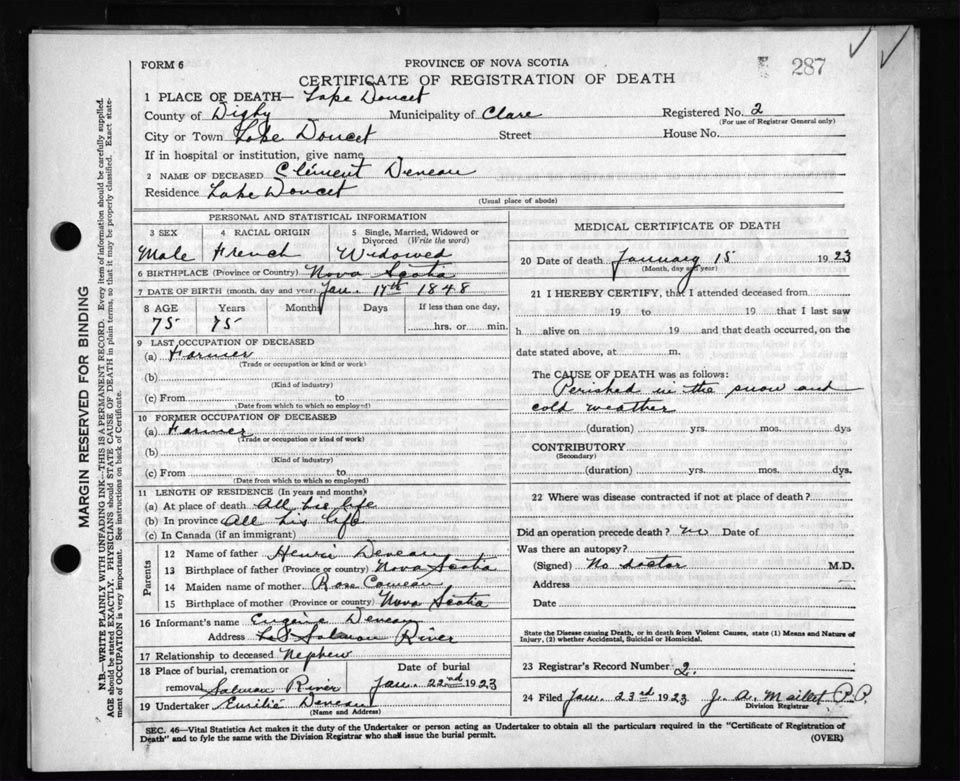 FORM 6
PROVINCE OF NOVA SCOTIA
287
CERTIFICATE OF REGISTRATION OF DEATH
1 PLACE OF DEATH— Lake Doucet
County of Digby Municipality of Clare Registered No. 2
(For use of Registrar General only)
City or Town Lake Doucet Street House No.
If in hospital or institution, give name
2 NAME OF DECEASED Clément Deneau
Residence Lake Doucet
(Usual place of abode)
PERSONAL AND STATISTICAL INFORMATION
3 SEX 4 RACIAL ORIGIN 5 Single, Married, Widowed or
Divorced (Write the word)
Male French Widowed
6 BIRTHPLACE (Province or Country) Nova Scotia
7 DATE OF BIRTH (month, day and year) Jan. 17th 1848
8 AGE Years Months Days If less than one day,
75 75 hrs. or min.
9 LAST OCCUPATION OF DECEASED
(a) Farmer
(Trade or occupation or kind or work)
(b)
(Kind of industry)
(c) From to
(Date from which to which so employed)
10 FORMER OCCUPATION OF DECEASED
(a) Farmer
(Trade or occupation or kind of work)
(b)
(Kind of industry)
(c) From to
(Date from which to which so employed)
11 LENGTH OF RESIDENCE (In years and months)
(a) At place of death All his life
(b) In province All his life
(c) In Canada (if an immigrant)
Parents
12 Name of father Henri Deveau
13 Birthplace of father (Province or country) Nova Scotia
14 Maiden name of mother Rose Comeau
15 Birthplace of mother (Province or country) Nova Scotia
16 Informant's name Eugénie Deveau
Address Salmon River
17 Relationship to deceased Nephew
18 Place of burial, cremation or Date of burial
removal Salmon River Jan. 22nd 1923
19 Undertaker Emilié Deveau
(Name and Address)
MEDICAL CERTIFICATE OF DEATH
20 Date of death January 15 1923
(Month, day and year)
21 I HEREBY CERTIFY, that I attended deceased from
19 to 19 that I last saw
h alive on 19 and that death occurred, on the
date stated above, at m.
The CAUSE OF DEATH was as follows:
Perished in the snow and
cold weather
(duration) yrs. mos. dys
CONTRIBUTORY
(Secondary)
(duration) yrs. mos. dys.
22 Where was disease contracted if not at place of death?
Did an operation precede death? no Date of
Was there an autopsy?
(Signed) No doctor M.D.
Address
Date
State the Disease causing Death, or in death from Violent Causes, state (1) Means and Nature of
Injury, (2) whether Accidental, Suicidal or Homicidal.
23 Registrar's Record Number 2.
24 Filed Jan. 23rd 1923 J. A. P.P.
Division Registrar
SEC. 46—Vital Statistics Act makes it the duty of the Undertaker or person acting as Undertaker to obtain all the particulars required in the "Certificate of Registration of
Death" and to fyle the same with the Division Registrar who shall issue the burial permit. (OVER)
MARGIN RESERVED FOR BINDING
N.B.—WRITE PLAINLY WITH UNFADING INK—THIS IS A PERMANENT RECORD. Every item of information should be carefully supplied.
AGE should be stated EXACTLY. PHYSICIANS should STATE CAUSE OF DEATH in plain terms, so that it may be properly classified. Exact state-
ment of OCCUPATION is very important. See instructions on back of Certificate.